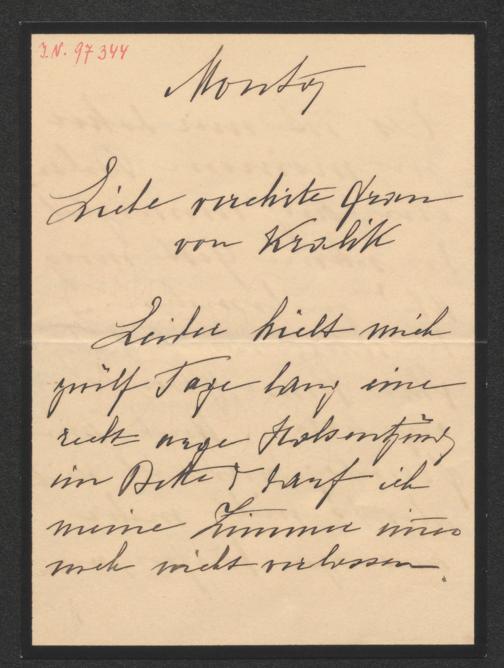 I.N. 97344
Montag
Liebe verehrte Frau
von Kralik
Leider hielt mich
zwölf Tage lang eine
recht arge Halsentzündg
im Bette & darf ich
meine Zimmer im̅er
noch nicht verlassen.